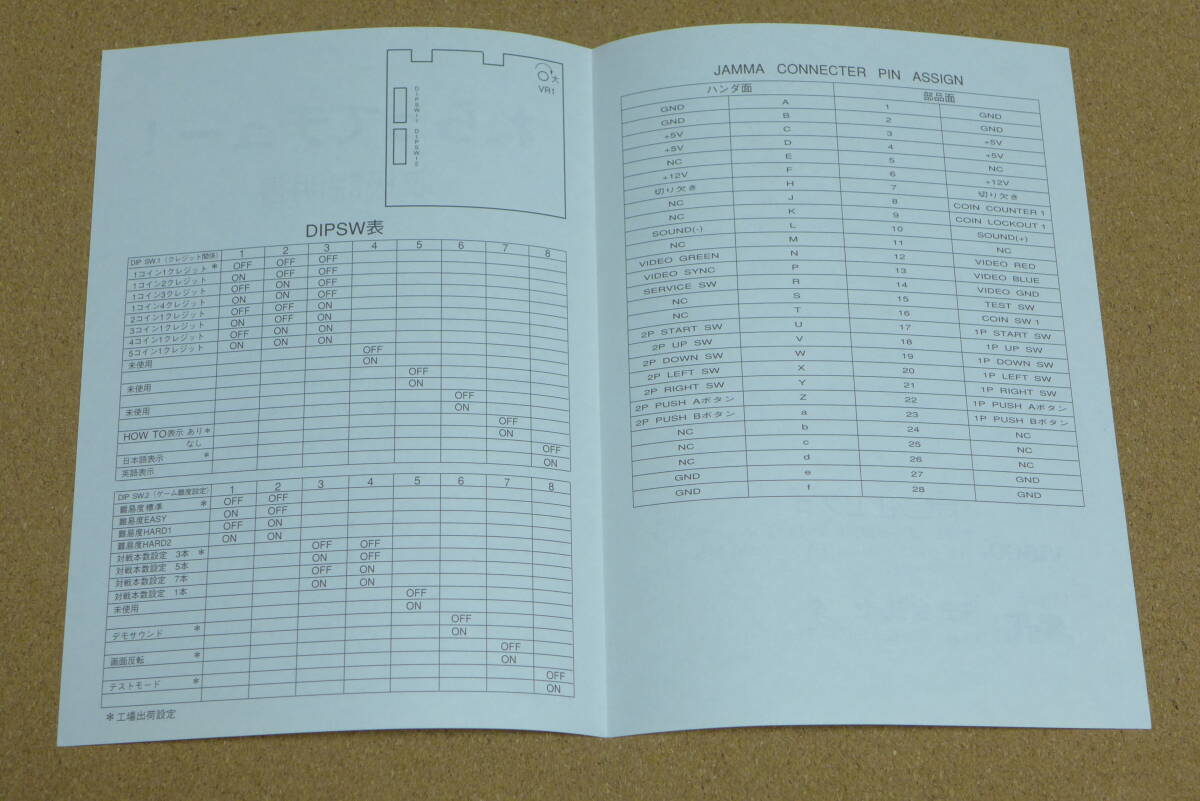 大
VR1
DIPSW1
DIPSW2
DIPSW表
DIP SW.1（クレジット関係） 1 2 3 4 5 6 7 8
1コイン1クレジット * OFF OFF OFF
1コイン2クレジット ON OFF OFF
1コイン3クレジット OFF ON OFF
1コイン4クレジット ON ON OFF
2コイン1クレジット OFF OFF ON
3コイン1クレジット ON OFF ON
4コイン1クレジット OFF ON ON
5コイン1クレジット ON ON ON
未使用 OFF
ON
未使用 OFF
ON
未使用 OFF
ON
HOW TO表示 あり* OFF
なし ON
日本語表示 * OFF
英語表示 ON
DIP SW.2（ゲーム難度設定） 1 2 3 4 5 6 7 8
難易度標準 * OFF OFF
難易度EASY ON OFF
難易度HARD1 OFF ON
難易度HARD2 ON ON
対戦本数設定 3本 * OFF OFF
対戦本数設定 5本 ON OFF
対戦本数設定 7本 OFF ON
対戦本数設定 1本 ON ON
未使用 OFF
ON
デモサウンド * OFF
ON
画面反転 * OFF
ON
テストモード * OFF
ON
*工場出荷設定
JAMMA CONNECTER PIN ASSIGN
ハンダ面 部品面
GND A 1 GND
GND B 2 GND
+5V C 3 +5V
+5V D 4 +5V
NC E 5 NC
+12V F 6 +12V
切り欠き H 7 切り欠き
NC J 8 COIN COUNTER 1
NC K 9 COIN LOCKOUT 1
SOUND(-) L 10 SOUND(+)
NC M 11 NC
VIDEO GREEN N 12 VIDEO RED
VIDEO SYNC P 13 VIDEO BLUE
SERVICE SW R 14 VIDEO GND
NC S 15 TEST SW
NC T 16 COIN SW 1
2P START SW U 17 1P START SW
2P UP SW V 18 1P UP SW
2P DOWN SW W 19 1P DOWN SW
2P LEFT SW X 20 1P LEFT SW
2P RIGHT SW Y 21 1P RIGHT SW
2P PUSH Aボタン Z 22 1P PUSH Aボタン
2P PUSH Bボタン a 23 1P PUSH Bボタン
NC b 24 NC
NC c 25 NC
NC d 26 NC
GND e 27 GND
GND f 28 GND